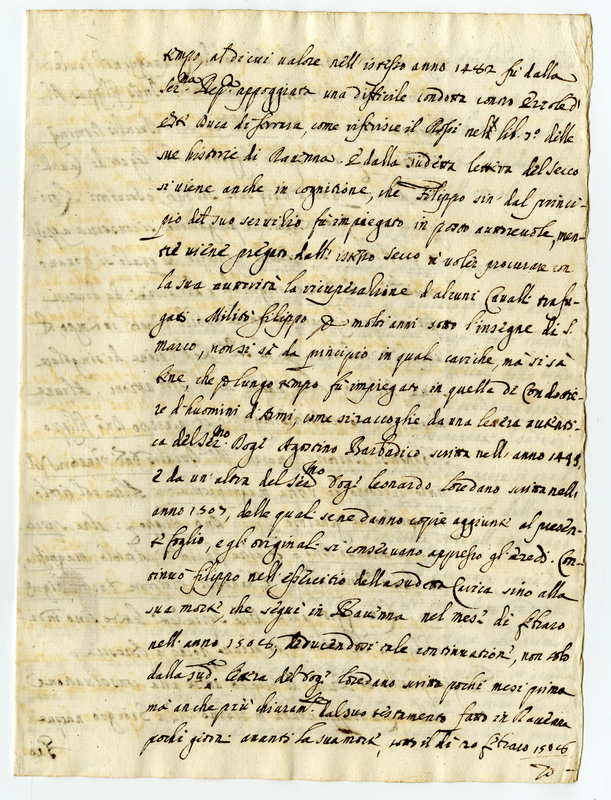 tempo, al di cui valore nell' istesso anno 1482 fù dalla
Ser.ma Rep.a appoggiata una difficile condotta contro Ercole d'
Este Duca di ferrara, come riferisce il Rossi nell' lib. 7.o delle
sue historie di Ravenna. E dalla sudetta lettera del Secco
si viene anche in cognitione, che filippo sin' dal princi-
pio del suo servitio fù impiegato in posto autorevole, men-
tre viene pregato dall' istesso Secco à voler procurare con
la sua autorità la ricuperatione d'alcuni Cavalli trafu-
gati. Militò filippo p molti anni sotto l'insegne di S.
Marco, non si sà da principio in quali cariche, mà si sà
bene, che p lungo tempo fù impiegato in quella di Condottie-
re d'huomini d'Armi, come si raccoglie da una lettera autenti-
ca del Ser.mo Doge Agostino Barbadico, scritta nell' anno 1499,
e da un' altra del Ser.mo Doge Leonardo Loredano scritta nell'
anno 1507, delle quali se ne danno copie aggiunte al presen-
te foglio, e gli originali si conservano appresso gl' Eredi. Con-
tinuò filippo nell' essercitio della sudetta Carica sino alla
sua morte, che seguì in Ravenna nel mese di febraro
nell' anno 1506, deducendosi tale continuatione, non solo
dalla sud.a lettera del Doge Loredano scritta pochi mesi prima
mà anche più chiaram.te dal suo testamento fatto in Ravenna
pochi giorni avanti la sua morte, sotto il dì 20 febraro 1506